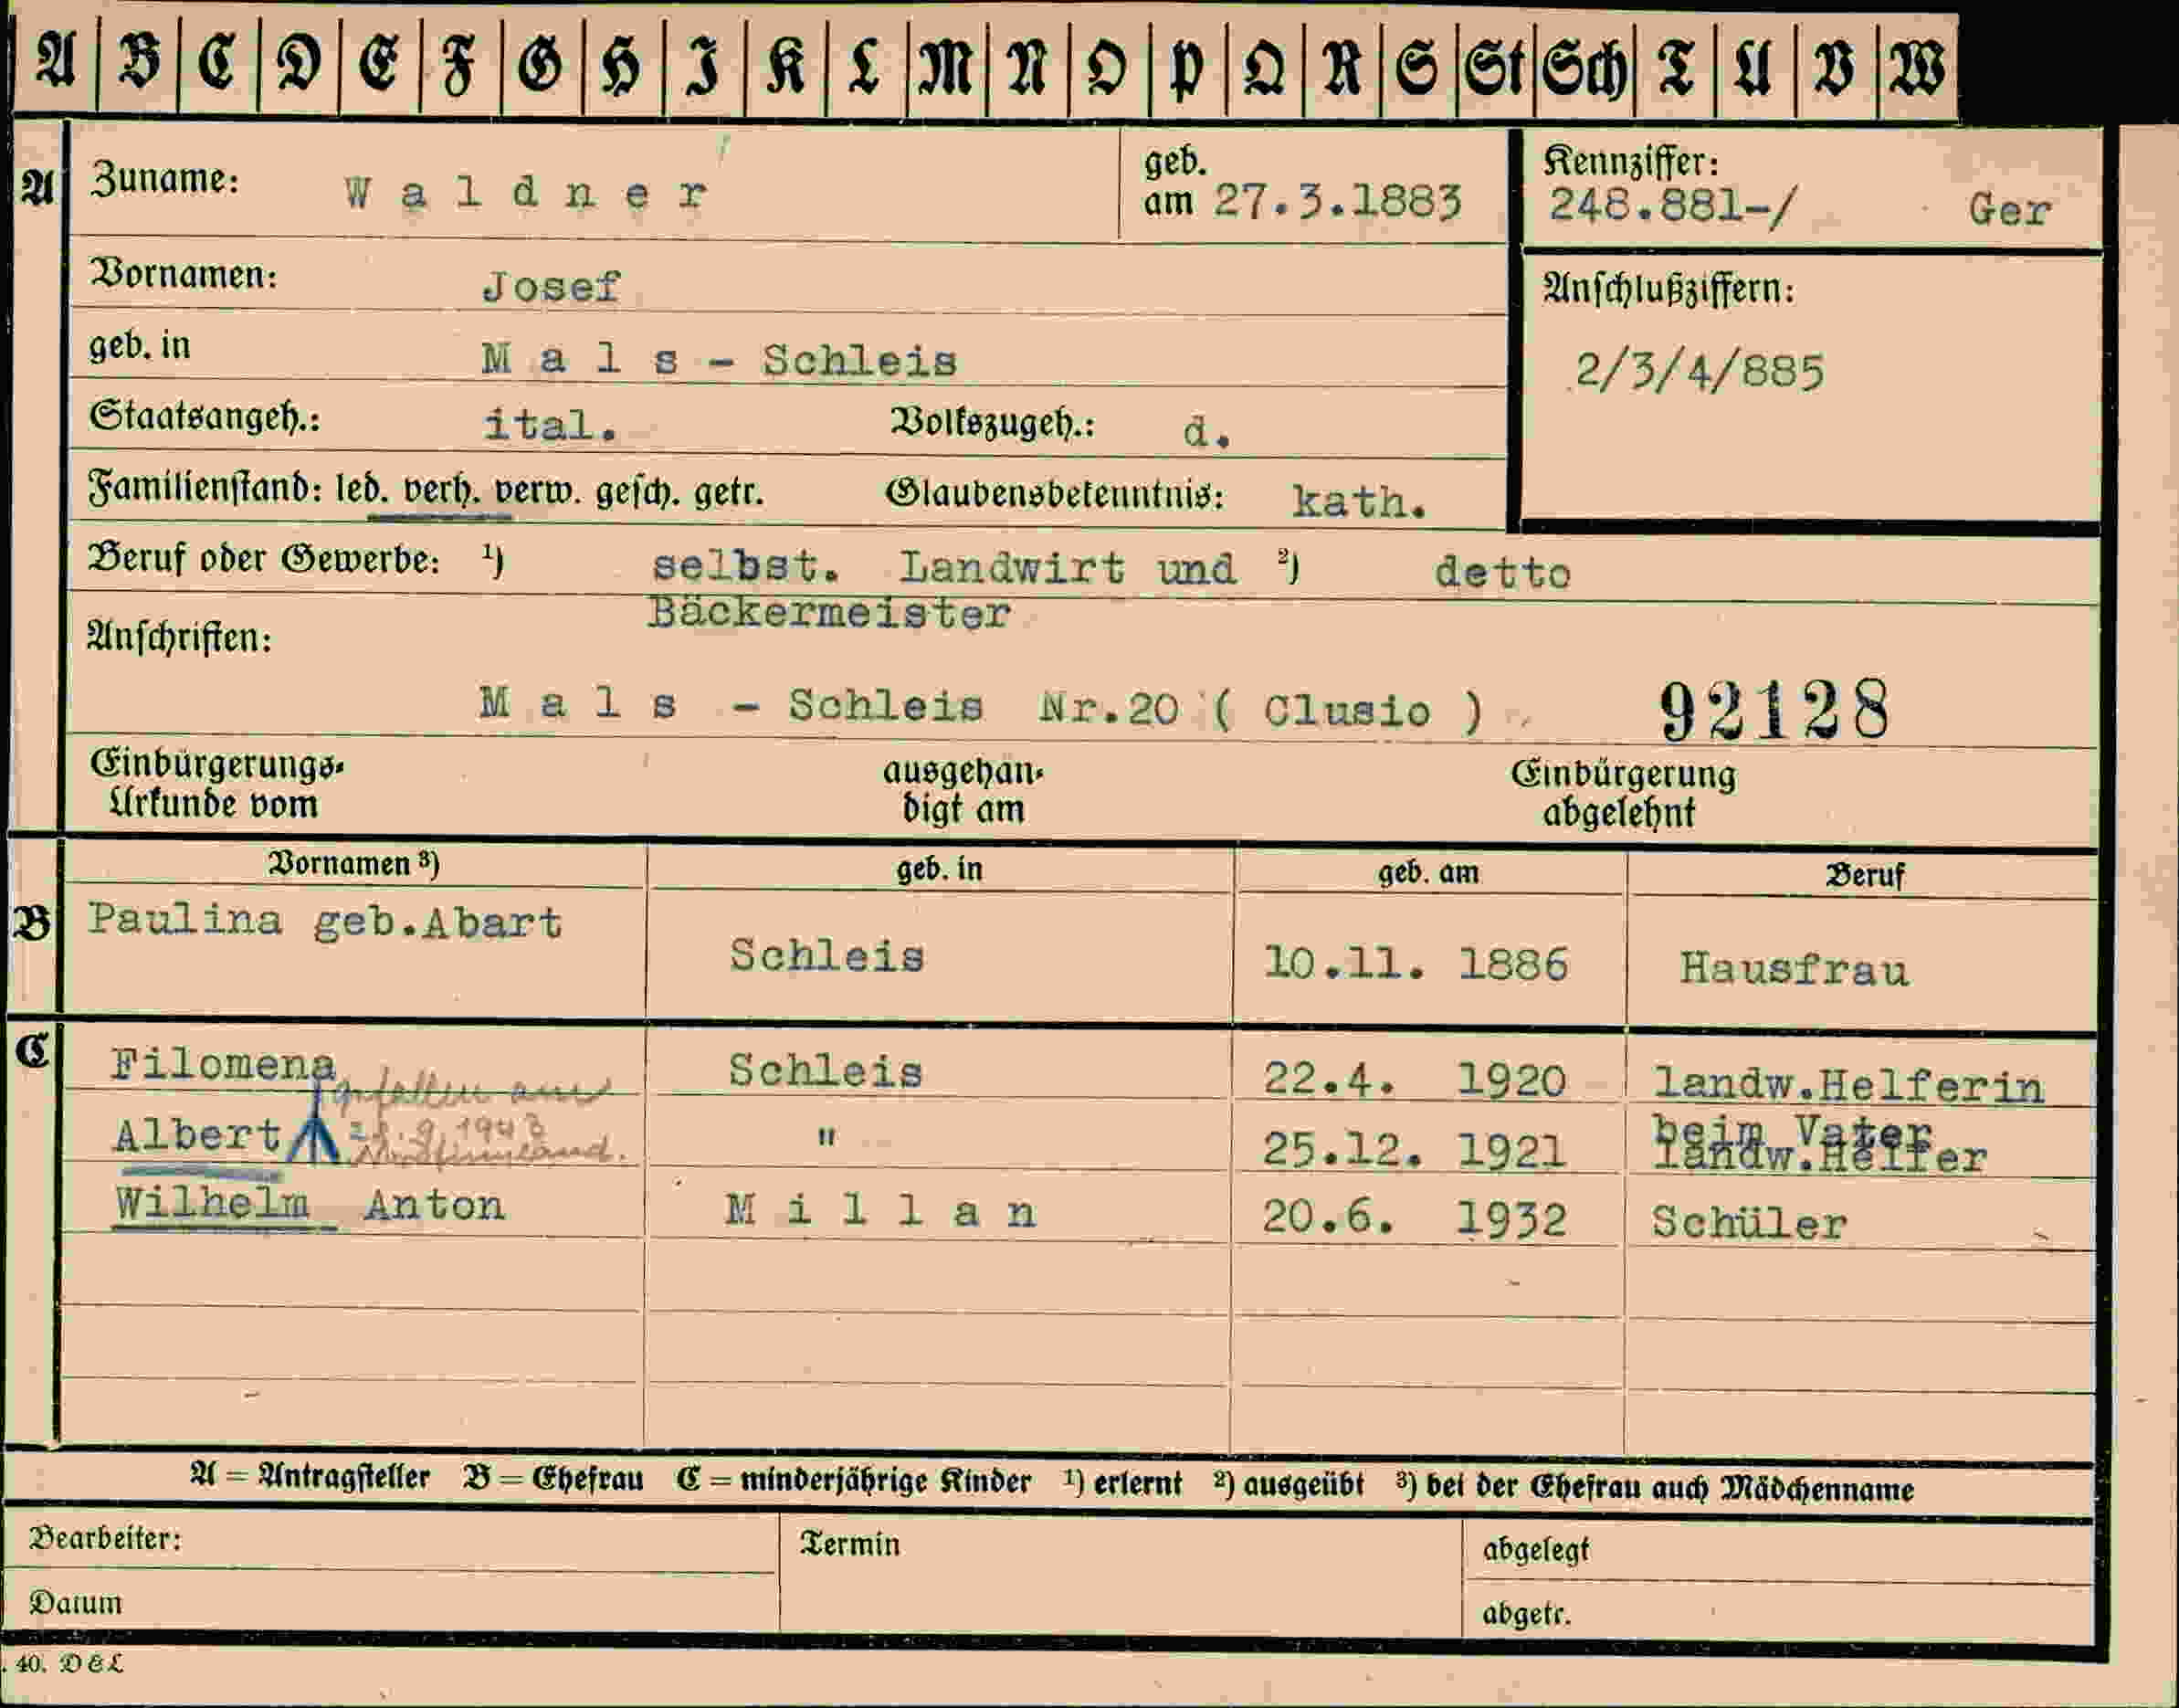 A B C D E F G H I K L M N O P Q R S St Sch T U V W
A Zuname: Waldner geb. am 27.3.1883 Kennziffer: 248.881-/ Ger
Vornamen: Josef Anschlußziffern:
geb. in Mals - Schleis 2/3/4/885
Staatsangeh.: ital. Volkszugeh.: d.
Familienstand: led. verh. verw. gesch. getr. Glaubensbekenntnis: kath.
Beruf oder Gewerbe: ¹) selbst. Landwirt und ²) detto
Bäckermeister
Anschriften:
Mals - Schleis Nr.20 ( Clusio ) 92128
Einbürgerungs- ausgehän- Einbürgerung
Urkunde vom digt am abgelehnt
Vornamen ³) geb. in geb. am Beruf
B Paulina geb.Abart
Schleis 10.11. 1886 Hausfrau
C Filomena Schleis 22.4. 1920 landw.Helferin
gefallen am
beim Vater
Albert 9.1943 " 25.12. 1921 landw.Helfer
Wilhelm Anton Millan 20.6. 1932 Schüler
A = Antragsteller B = Ehefrau C = minderjährige Kinder ¹) erlernt ²) ausgeübt ³) bei der Ehefrau auch Mädchenname
Bearbeiter: Termin abgelegt
Datum abgetr.
. 40. D&L